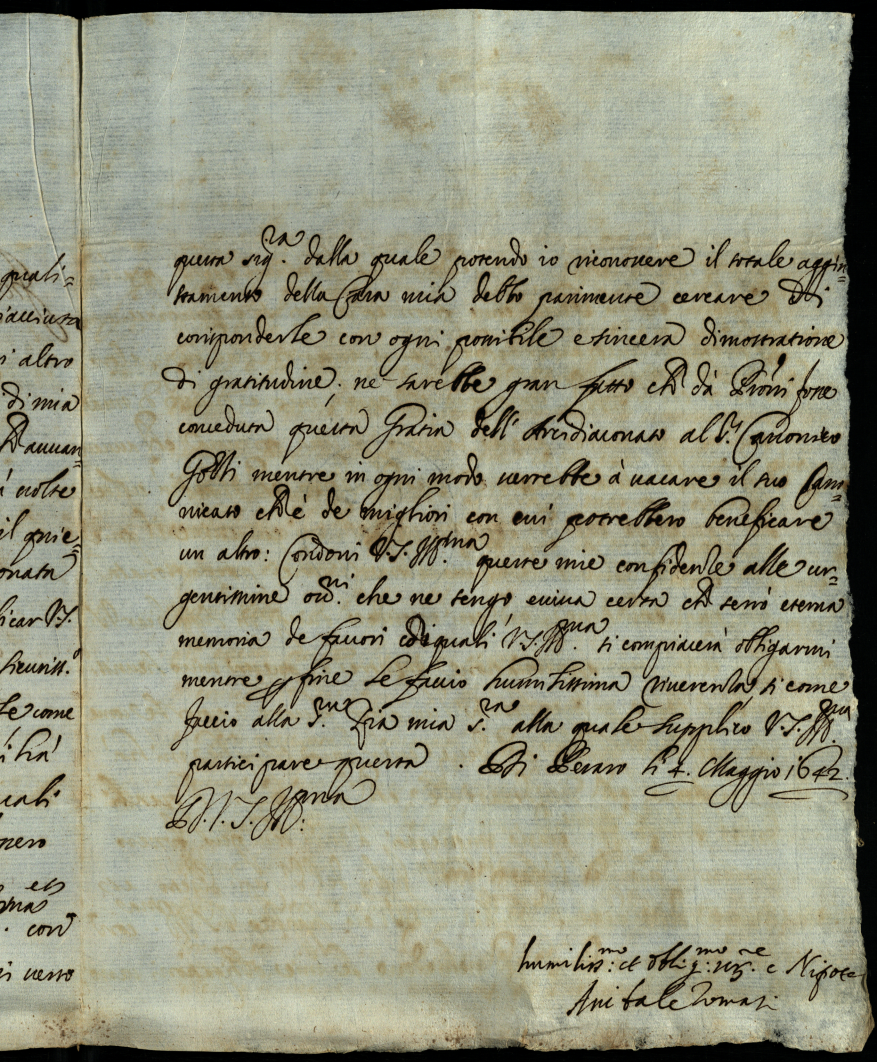 quali=
i altro
di mia
à volte
il quie=
onata
licar V.S.
le come
quali
nero
et
con
si verso
questa Sig.ra dalla quale potendo io riconoscere il totale aggiu=
stamento della Casa mia debbo parimente cercare di
corrisponderle con ogni possibile e sincera dimostratione
di gratitudine. ne sarebbe gran fatto ch dà Pròni fosse
conceduta questa Gratia dell' Arcidiaconato al S.r Canonico
Gotti mentre in ogni modo verrebbe à vacare il suo Cano=
nicato ch è de migliori con cui potrebbero beneficare
un altro: Condoni V.S. Ill.ma queste mie confidenze alle ur=
gentissime occ.ni che ne tengo e viva certa ch terrò eterna
memoria de favori de quali V.S. Ill.ma si compiacerà obligarmi
mentre p fine le faccio humilissima riverenza, si come
faccio alla S.ra Zia mia S.ra alla quale supplico V.S. Ill.ma
participare questa. Di Pesaro li 4. Maggio 1642.
D. V. S. Ill.ma
humiliss.mo et oblig.mo ser.re e Nipote
Anibale Tomasi